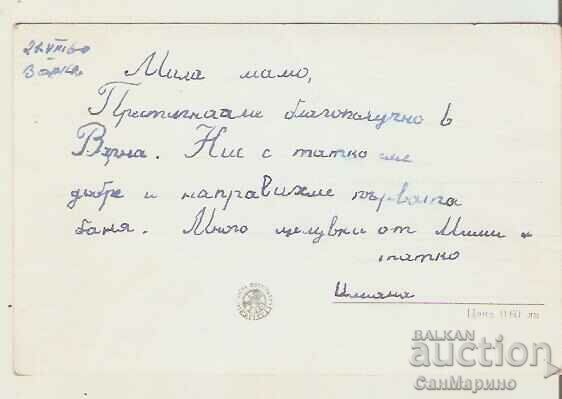 Варна
Мила мамо,
Пристигнахме благополучно в
Варна. Ние с татко сме
добре и направихме първата
баня. Много целувки от Мими и
татко
Цена 0.60 лв
BALKAN
auction
СанМарино